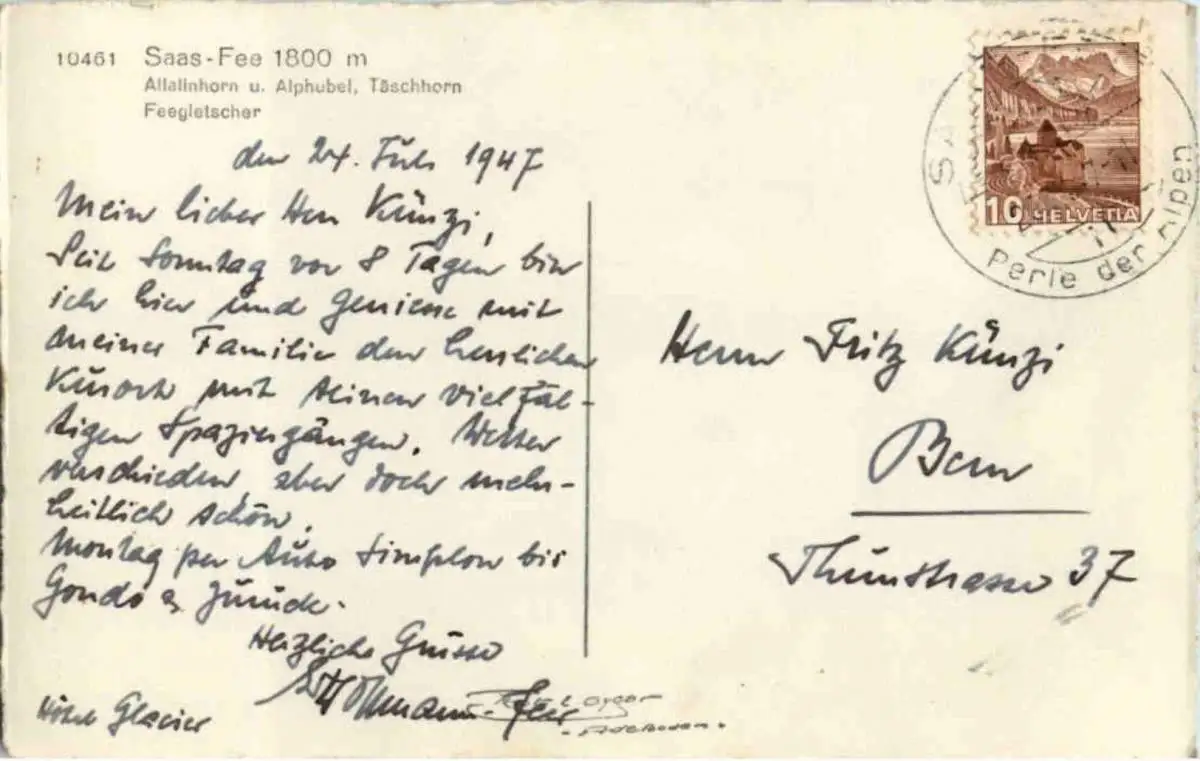 10461 Saas-Fee 1800 m
Allalinhorn u. Alphubel, Täschhorn
Feegletscher
den 24. Juli 1947
Mein lieber Herr Künzi,
Seit Sonntag vor 8 Tagen bin
ich hier und geniesse mit
meiner Familie den herrlichen
Kurort mit seinen vielfäl-
tigen Spaziergängen. Wetter
verschieden, aber doch mehr-
heitlich schön.
Montag per Auto Simplon bis
Gondo & zurück.
Herzliche Grüsse
Hotel Glacier
HELVETIA
10
Perle der Alpen
Herrn Fritz Künzi
Bern
Thunstrasse 37